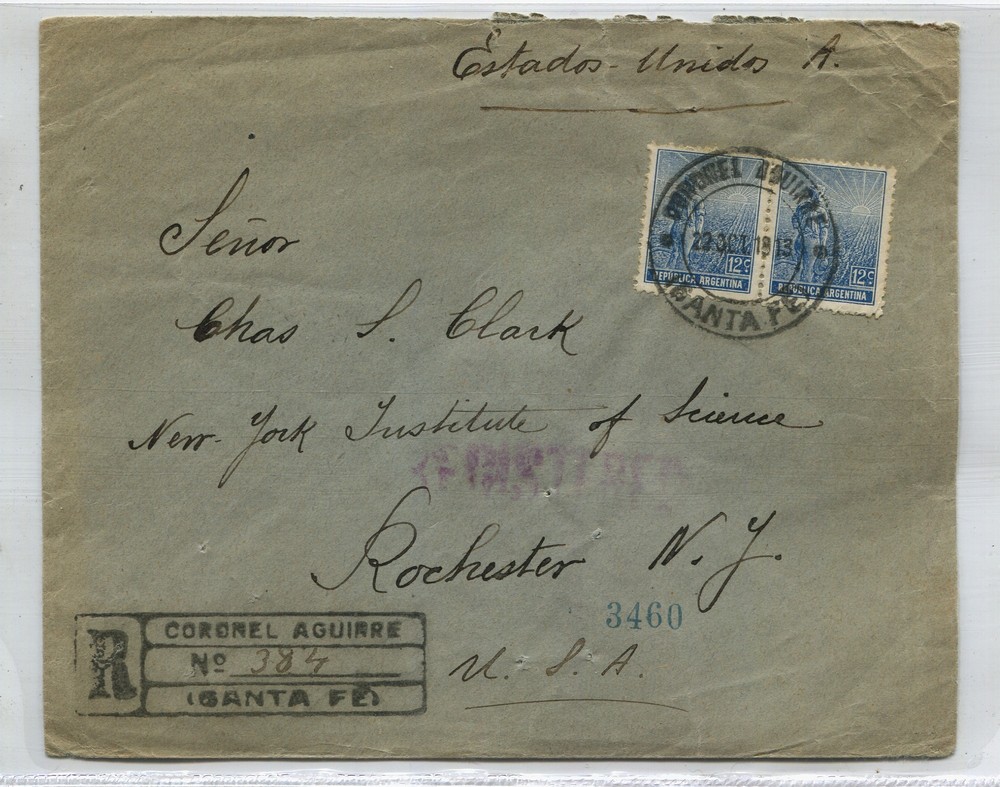 Estados-Unidos A.
Señor
Chas S. Clark
New-York Institute of Science
Rochester N. Y.
U. S. A.
3460
CORONEL AGUIRRE
22 OCT 1913
SANTA FE
12c
REPUBLICA ARGENTINA
12c
REPUBLICA ARGENTINA
R
CORONEL AGUIRRE
Nº 384
(SANTA FE)